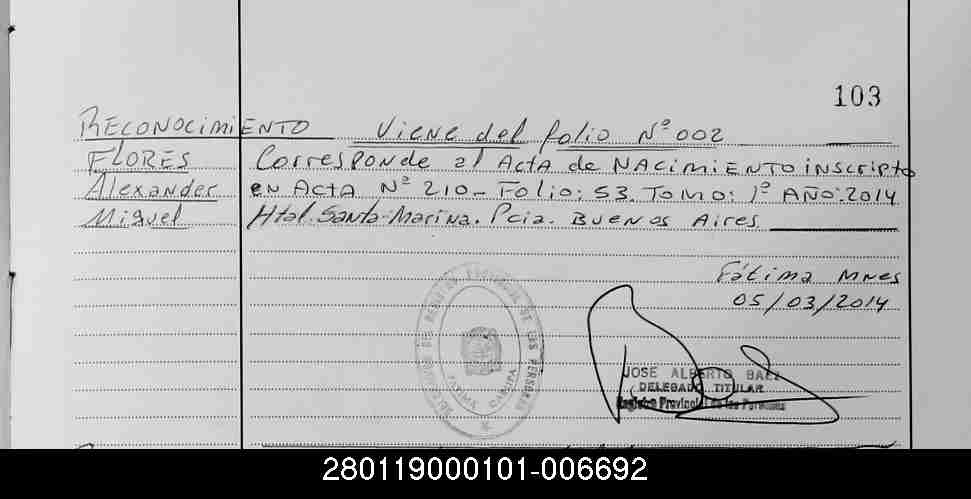 103
RECONOCIMIENTO Viene del folio Nº 002
FLORES Corresponde al ACTA de NACIMIENTO inscripto
Alexander en ACTA Nº 210 - Folio: 53. TOMO: 1º AÑO: 2014
Miguel Htal. Santa Marina. Pcia. BUENOS Aires.
Fátima Mnes
05/03/2014
JOSE ALBERTO BAEZ
DELEGADO TITULAR
Registro Provincial de las Personas
REGISTRO PROVINCIAL DE LAS PERSONAS
FATIMA
280119000101-006692